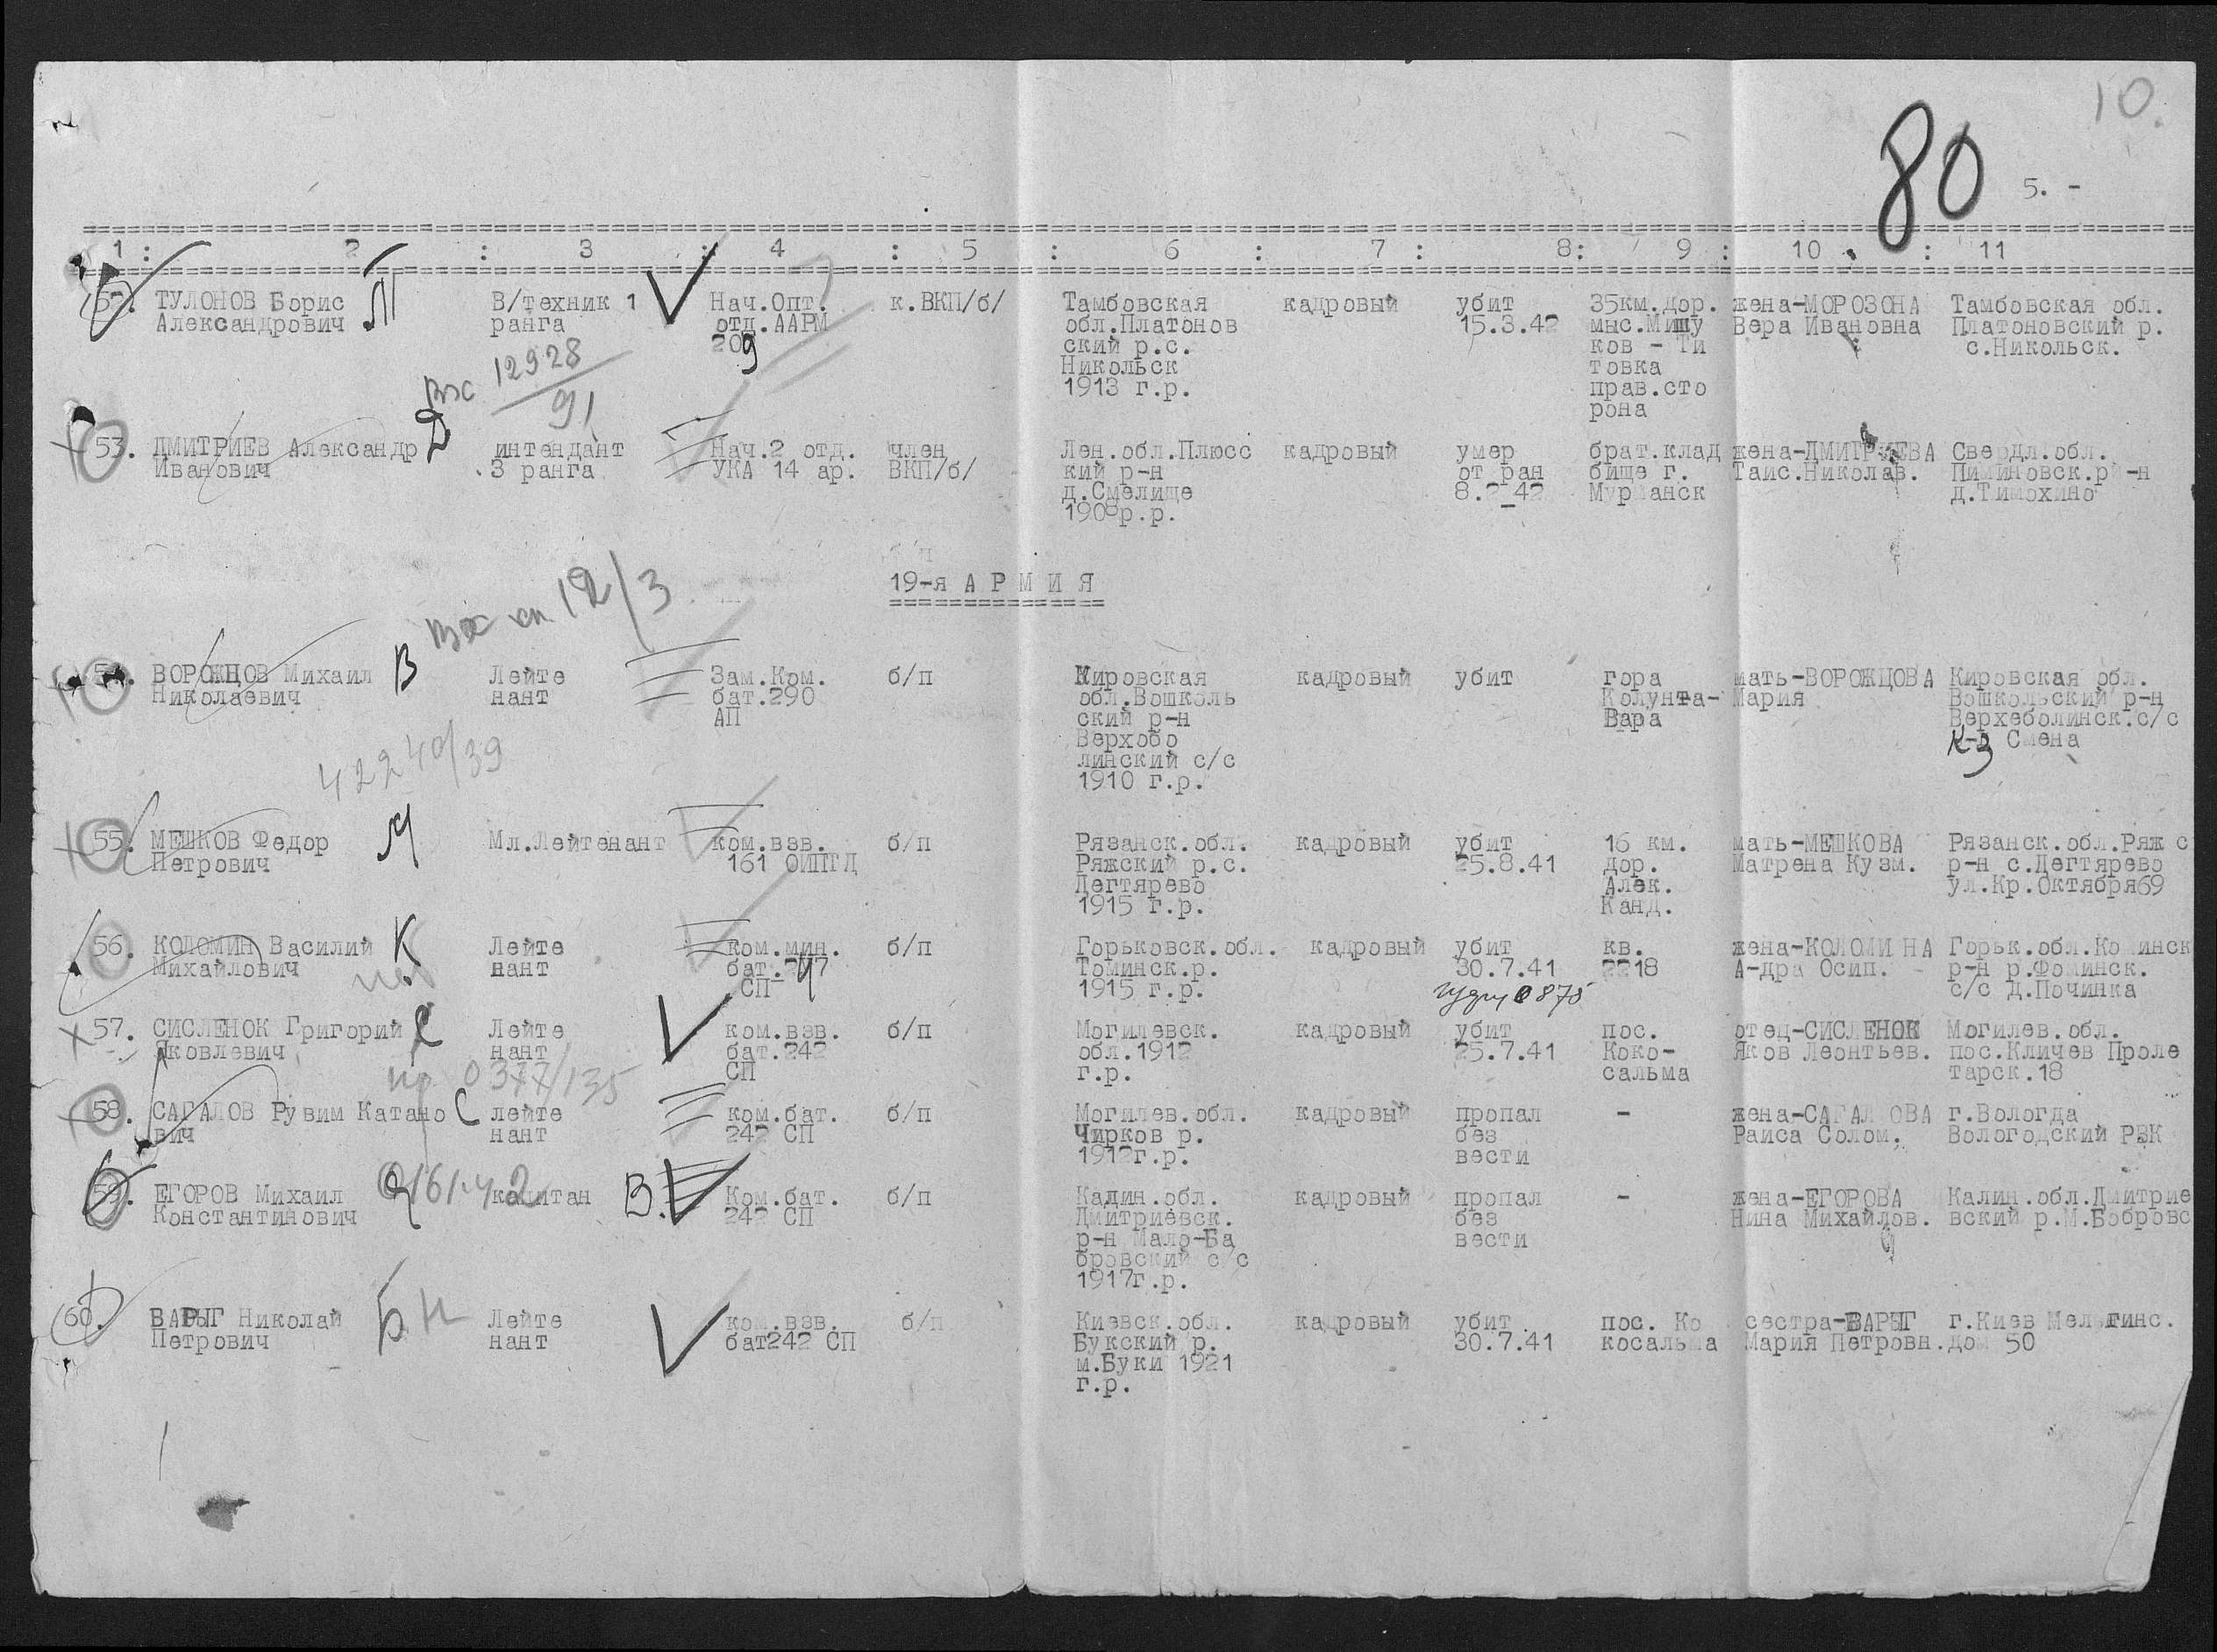 10.
80
5. -
1 : 2 : 3 : 4 : 5 : 6 : 7 : 8: 9 : 10 : 11
52. ТУЛОНОВ Борис П В/техник 1 Нач.Опт. к.ВКП/б/ Тамбовская кадровый убит 35км.дор. жена-МОРОЗОНА Тамбовская обл.
Александрович ранга отд.ААРМ обл.Платонов 15.3.42 мыс.Мишу Вера Ивановна Платоновский р.
209 ский р.с. ков - Ти с.Никольск.
Никольск товка
1913 г.р. прав.сто
рона
12928
91
53. ДМИТРИЕВ Александр Д интендант Нач.2 отд. член Лен.обл.Плюсс кадровый умер брат.клад жена-ДМИТРИЕВА Свердл.обл.
Иванович 3 ранга УКА 14 ар. ВКП/б/ кий р-н от ран бище г. Таис.Николав. Пиминовск.р-н
д.Смелище 8.2_42 Мурманск д.Тимохино
1908р.р.
19-я А Р М И Я
12/3
54. ВОРОЖЦОВ Михаил В Лейте Зам.Ком. б/п Кировская кадровый убит гора мать-ВОРОЖЦОВА Кировская обл.
Николаевич нант бат.290 обл.Вошколь Колунта- Мария Вошкольский р-н
АП ский р-н Вара Верхеболинск.с/с
Верхобо К-з Смена
линский с/с
1910 г.р.
42240/39
55. МЕШКОВ Федор М Мл.Лейтенант ком.взв. б/п Рязанск.обл. кадровый убит 16 км. мать-МЕШКОВА Рязанск.обл.Ряж с
Петрович 161 ОИПТД Ряжский р.с. 25.8.41 дор. Матрена Кузм. р-н с.Дегтярево
Дегтярево Алек. ул.Кр.Октября69
1915 г.р. Канд.
56. КОЛОМИН Василий К Лейте ком.мин. б/п Горьковск.обл. кадровый убит кв. жена-КОЛОМИНА Горьк.обл.Коминск
Михайлович нант бат. Томинск.р. 30.7.41 2218 А-дра Осип. р-н р.Фоминск.
СП 1915 г.р. с/с д.Починка
57. СИСЛЕНОК Григорий С Лейте ком.взв. б/п Могилевск. кадровый убит пос. отец-СИСЛЕНОК Могилев.обл.
Яковлевич нант бат.242 обл.1912 25.7.41 Коко- Яков Леонтьев. пос.Кличев Проле
СП г.р. сальма тарск.18
0377/135
58. САГАЛОВ Рувим Катано С лейте ком.бат. б/п Могилев.обл. кадровый пропал - жена-САГАЛОВА г.Вологда
вич нант 242 СП Чирков р. без Раиса Солом. Вологодский РВК
1912г.р. вести
59. ЕГОРОВ Михаил капитан В. Ком.бат. б/п Кадин.обл. кадровый пропал - жена-ЕГОРОВА Калин.обл.Дмитрие
Константинович 242 СП Дмитриевск. без Нина Михайлов. вский р.М.Бобровс
р-н Мало-Ба вести
бровский с/с
1917г.р.
60. ВАРЫГ Николай Б Н Лейте ком.взв. б/п Киевск.обл. кадровый убит пос. Ко сестра-ВАРЫГ г.Киев
Петрович нант бат242 СП Букский р. 30.7.41 косальма Мария Петровн. дом 50
м.Буки 1921
г.р.